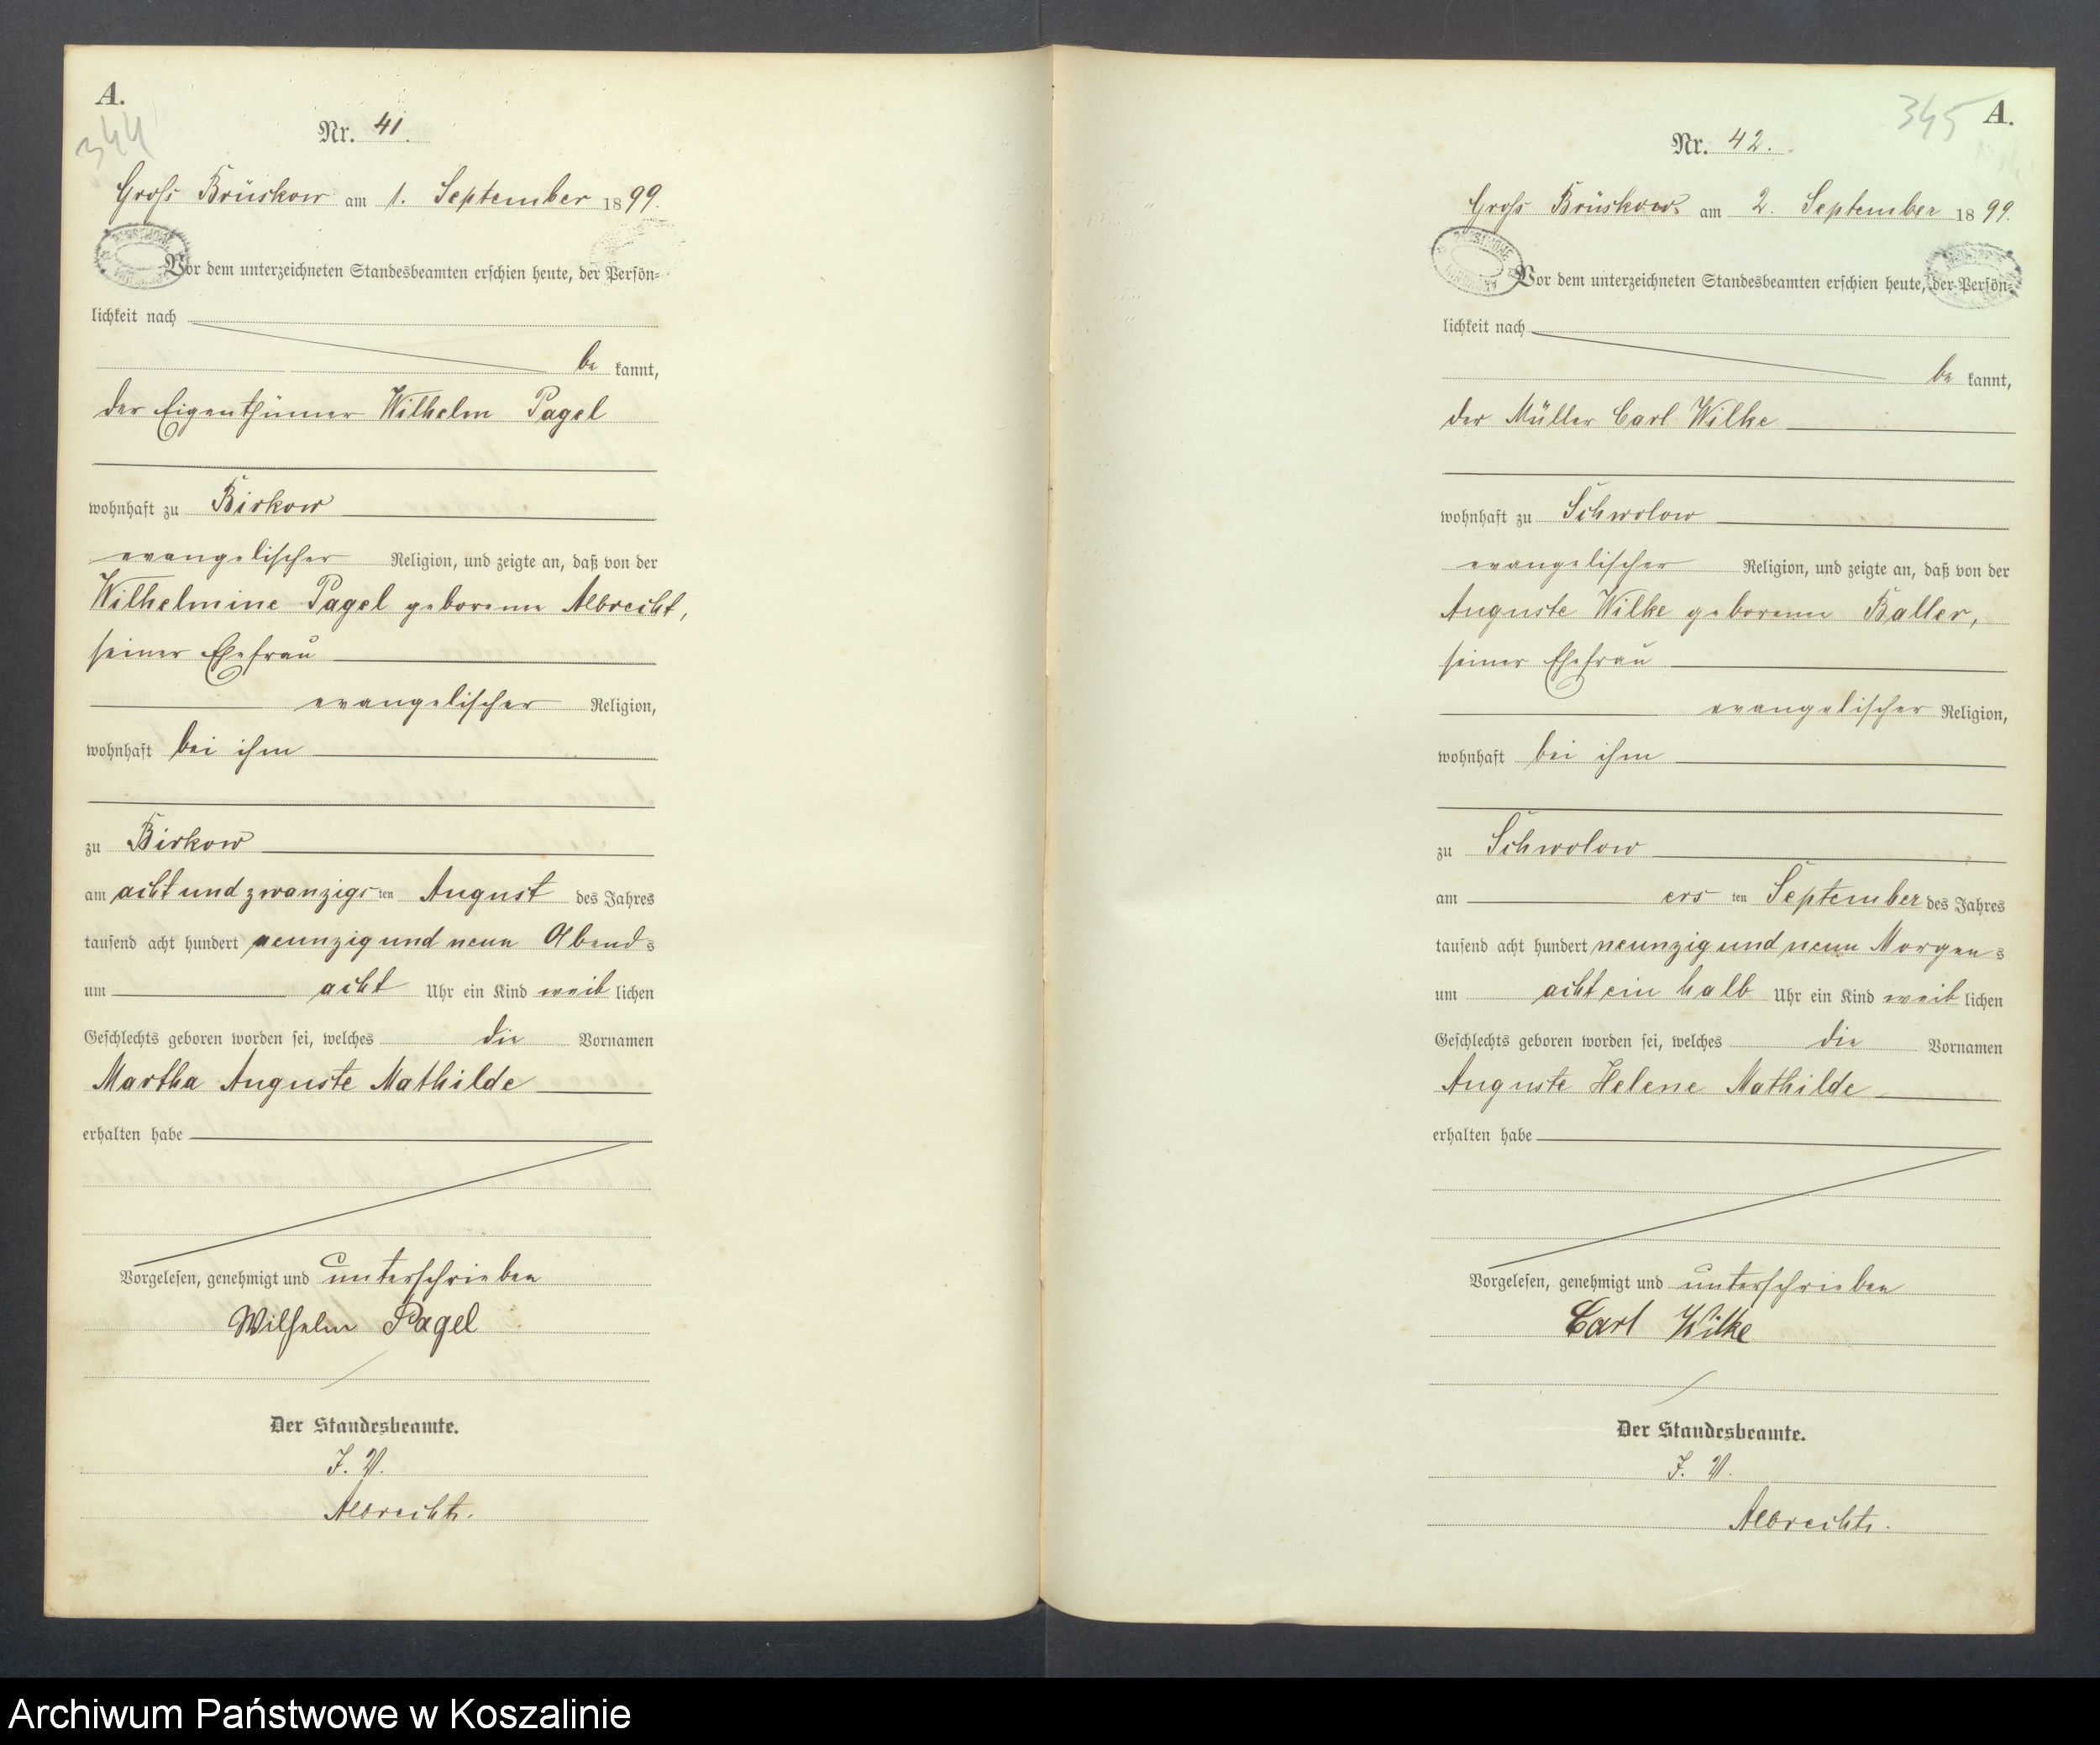 A.
344
Nr. 41.
Groß Brüskow am 1. September 1899.
Vor dem unterzeichneten Standesbeamten erschien heute, der Persön=
lichkeit nach
be kannt,
der Eigenthümer Wilhelm Pagel
wohnhaft zu Birkow
evangelischer Religion, und zeigte an, daß von der
Wilhelmine Pagel geborene Albrecht,
seiner Ehefrau
evangelischer Religion,
wohnhaft bei ihm
zu Birkow
am acht und zwanzigs ten August des Jahres
tausend acht hundert neunzig und neun Abend s
um acht Uhr ein Kind weib lichen
Geschlechts geboren worden sei, welches die Vornamen
Martha Auguste Mathilde
erhalten habe
Vorgelesen, genehmigt und unterschrieben
Wilhelm Pagel
Der Standesbeamte.
J. V.
Albrecht.
345 A.
Nr. 42.
Groß Brüskow am 2. September 1899.
Vor dem unterzeichneten Standesbeamten erschien heute, der Persön=
lichkeit nach
be kannt,
der Müller Carl Wilke
wohnhaft zu Schwolow
evangelischer Religion, und zeigte an, daß von der
Auguste Wilke geborene Baller,
seiner Ehefrau
evangelischer Religion,
wohnhaft bei ihm
zu Schwolow
am ers ten September des Jahres
tausend acht hundert neunzig und neun Morgen s
um acht ein halb Uhr ein Kind weib lichen
Geschlechts geboren worden sei, welches die Vornamen
Auguste Helene Mathilde
erhalten habe
Vorgelesen, genehmigt und unterschrieben
Carl Wilke
Der Standesbeamte.
J. V.
Albrecht.
Archiwum Państwowe w Koszalinie